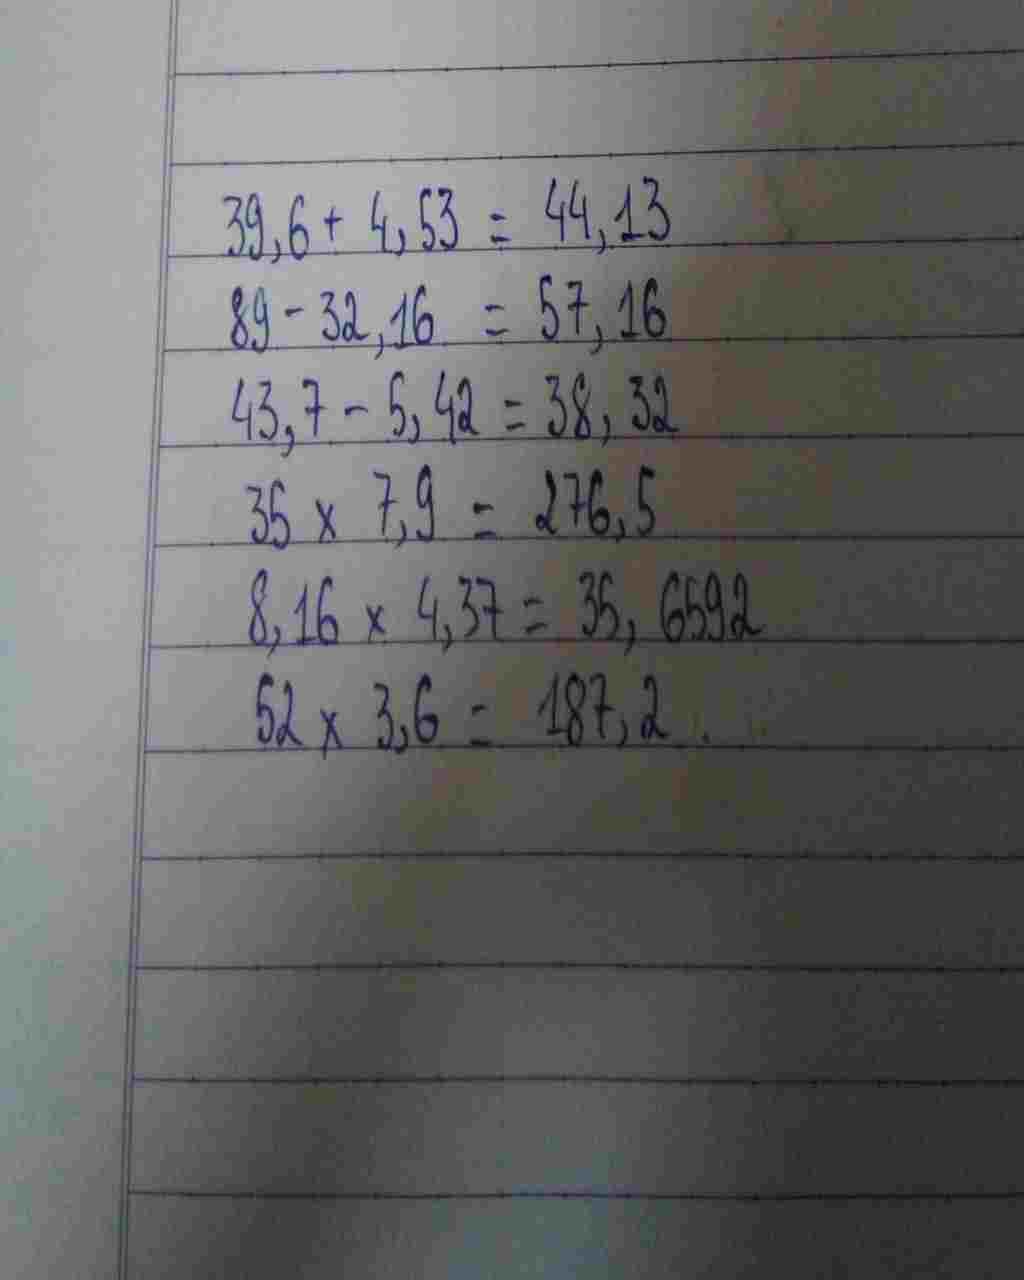 39,6 + 4,53 = 44,13
89 - 32,16 = 57,16
43,7 - 5,42 = 38,32
35 x 7,9 = 276,5
8,16 x 4,37 = 35,6592
52 x 3,6 = 187,2.